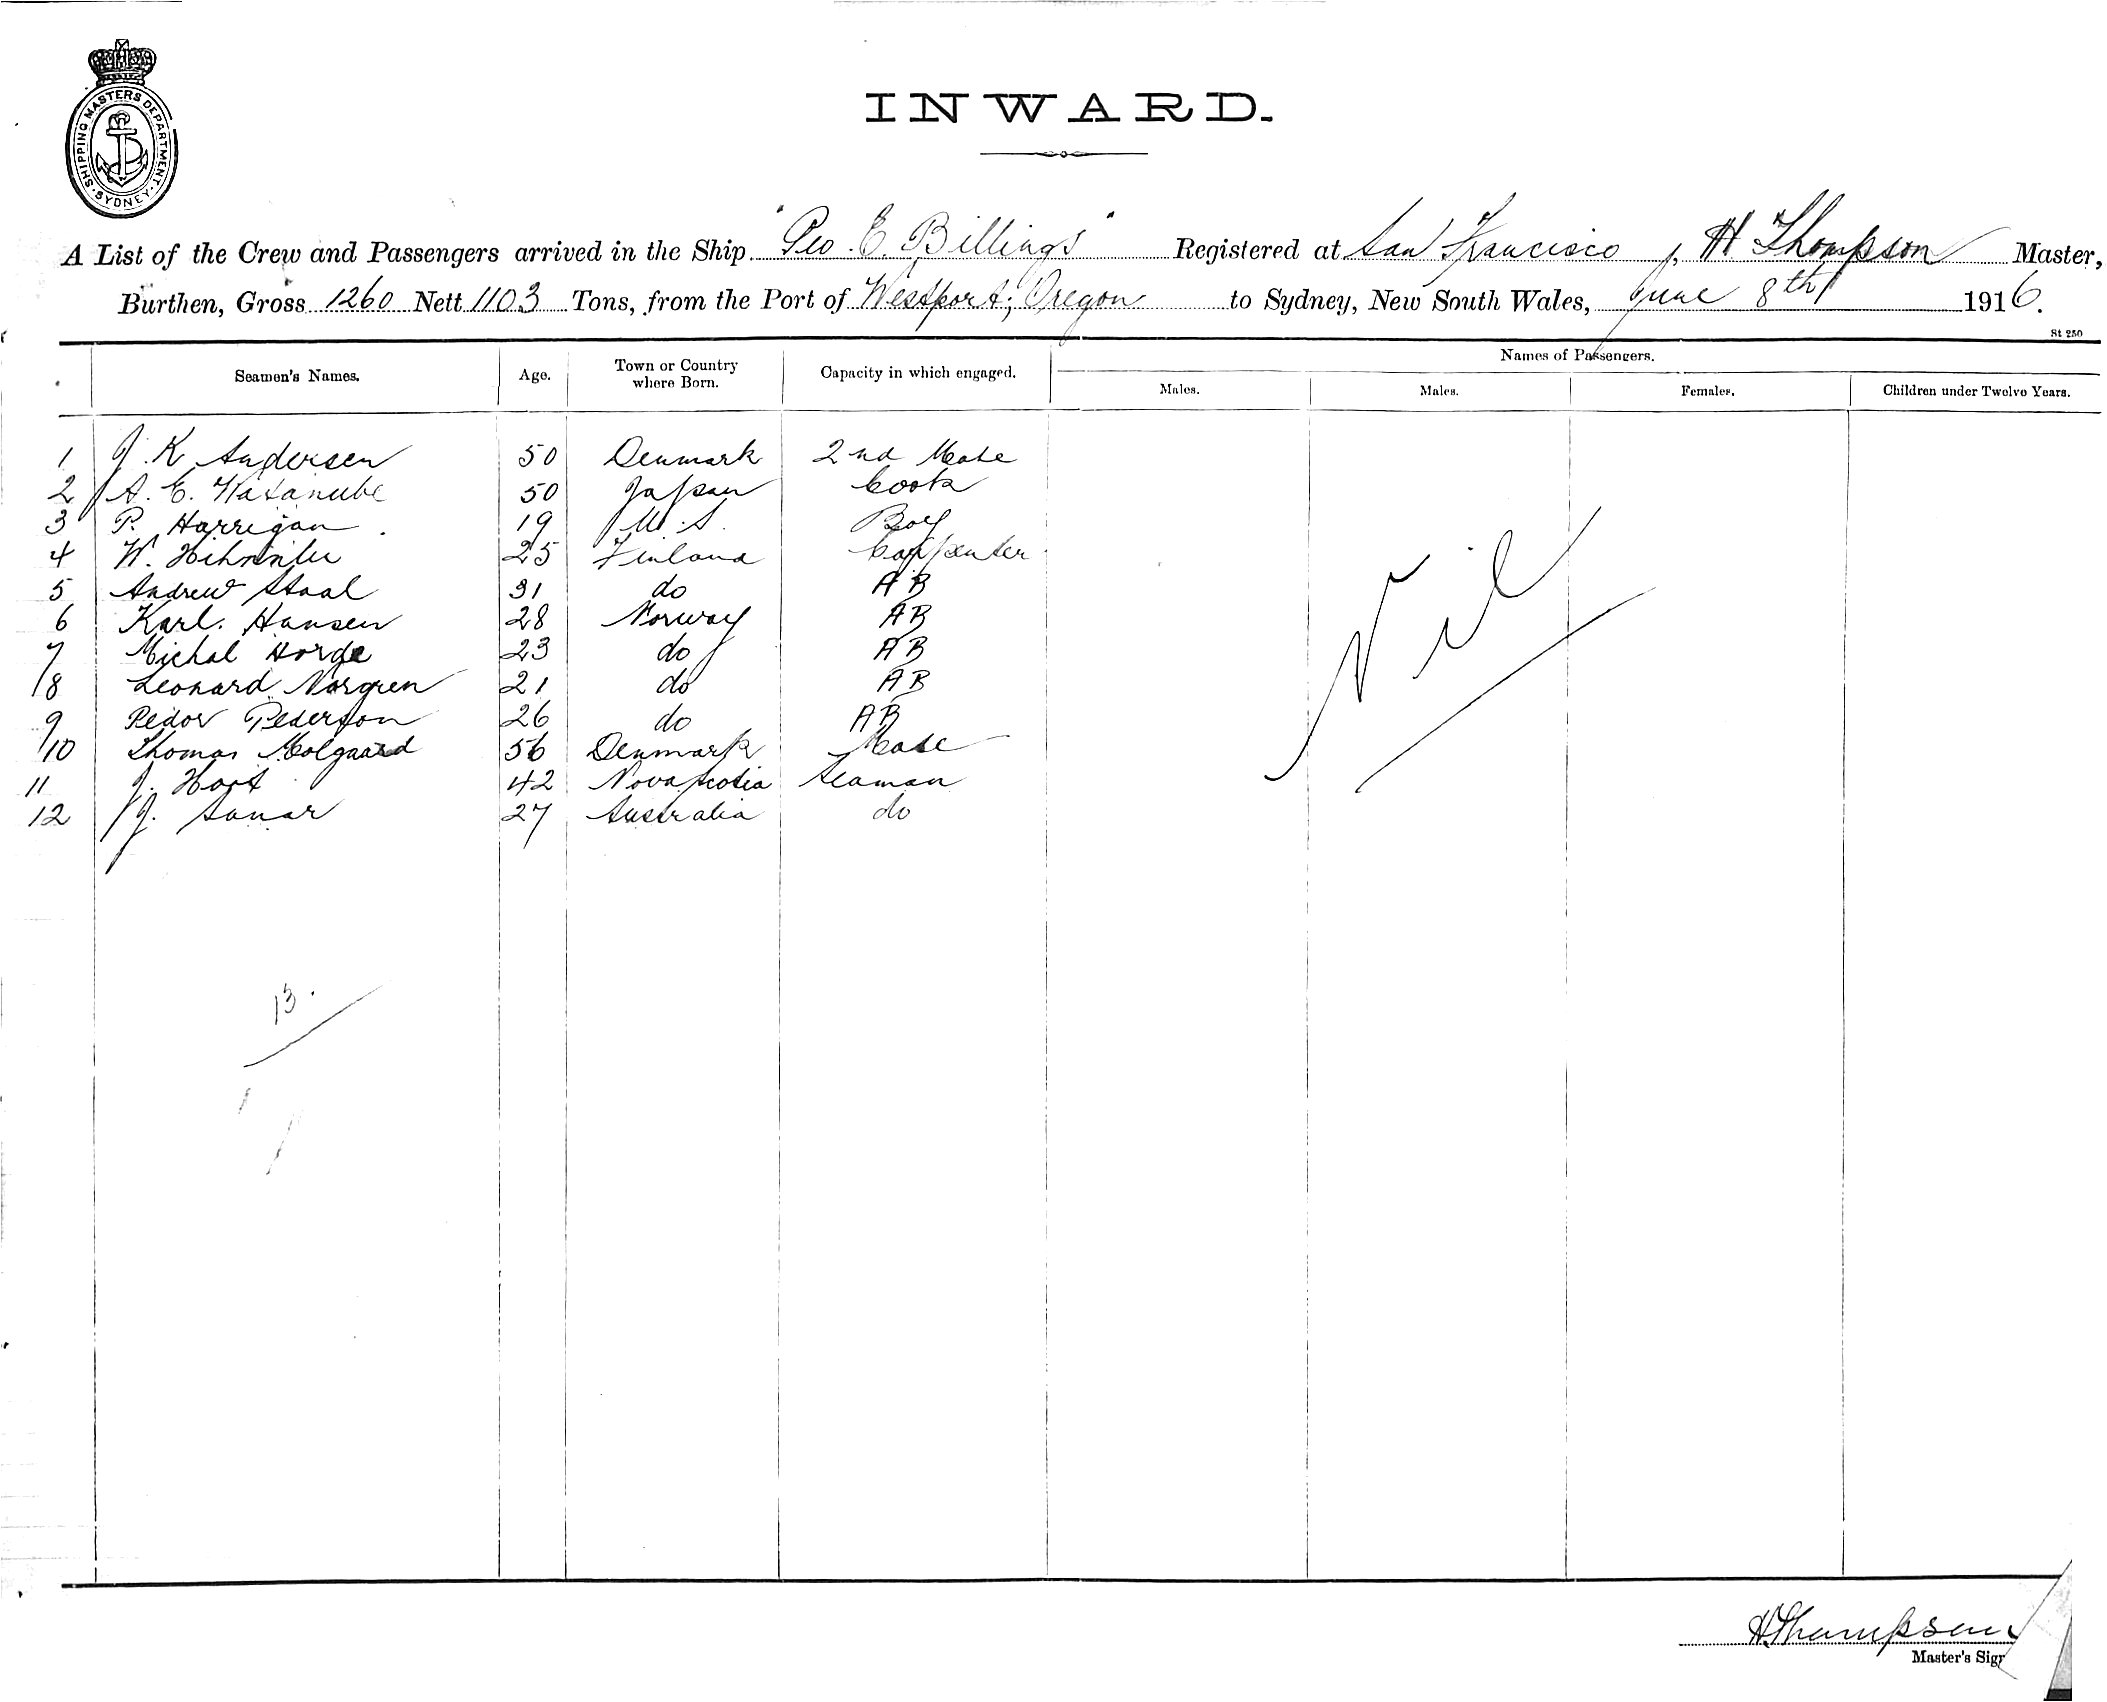 SHIPPING MASTERS DEPARTMENT · SYDNEY ·
INWARD.
A List of the Crew and Passengers arrived in the Ship "Geo. E. Billings" Registered at San Francisco, H Thompson Master,
Burthen, Gross 1260 Nett 1103 Tons, from the Port of Westport, Oregon to Sydney, New South Wales, June 8th 1916.
St 250
Seamen's Names. Age. Town or Country where Born. Capacity in which engaged. Names of Passengers.
Males. Males. Females. Children under Twelve Years.
1 J. K Andersen 50 Denmark 2nd Mate
2 A. E. Watanube 50 Japan Cook
3 P. Harrigan 19 U.S. Boy
4 W. 25 Finland Carpenter
5 Andrew Staal 31 do AB
6 Karl. Hansen 28 Norway AB
7 Michal Horde 23 do AB
8 Leonard Norgren 21 do AB
9 Pedor Pederson 26 do AB
10 Thomas Molgaard 56 Denmark Mate
11 J. Hart 42 Nova Scotia Seaman
12 J. Sanar 27 Australia do
Nil
13.
H Thompson
Master's Sign